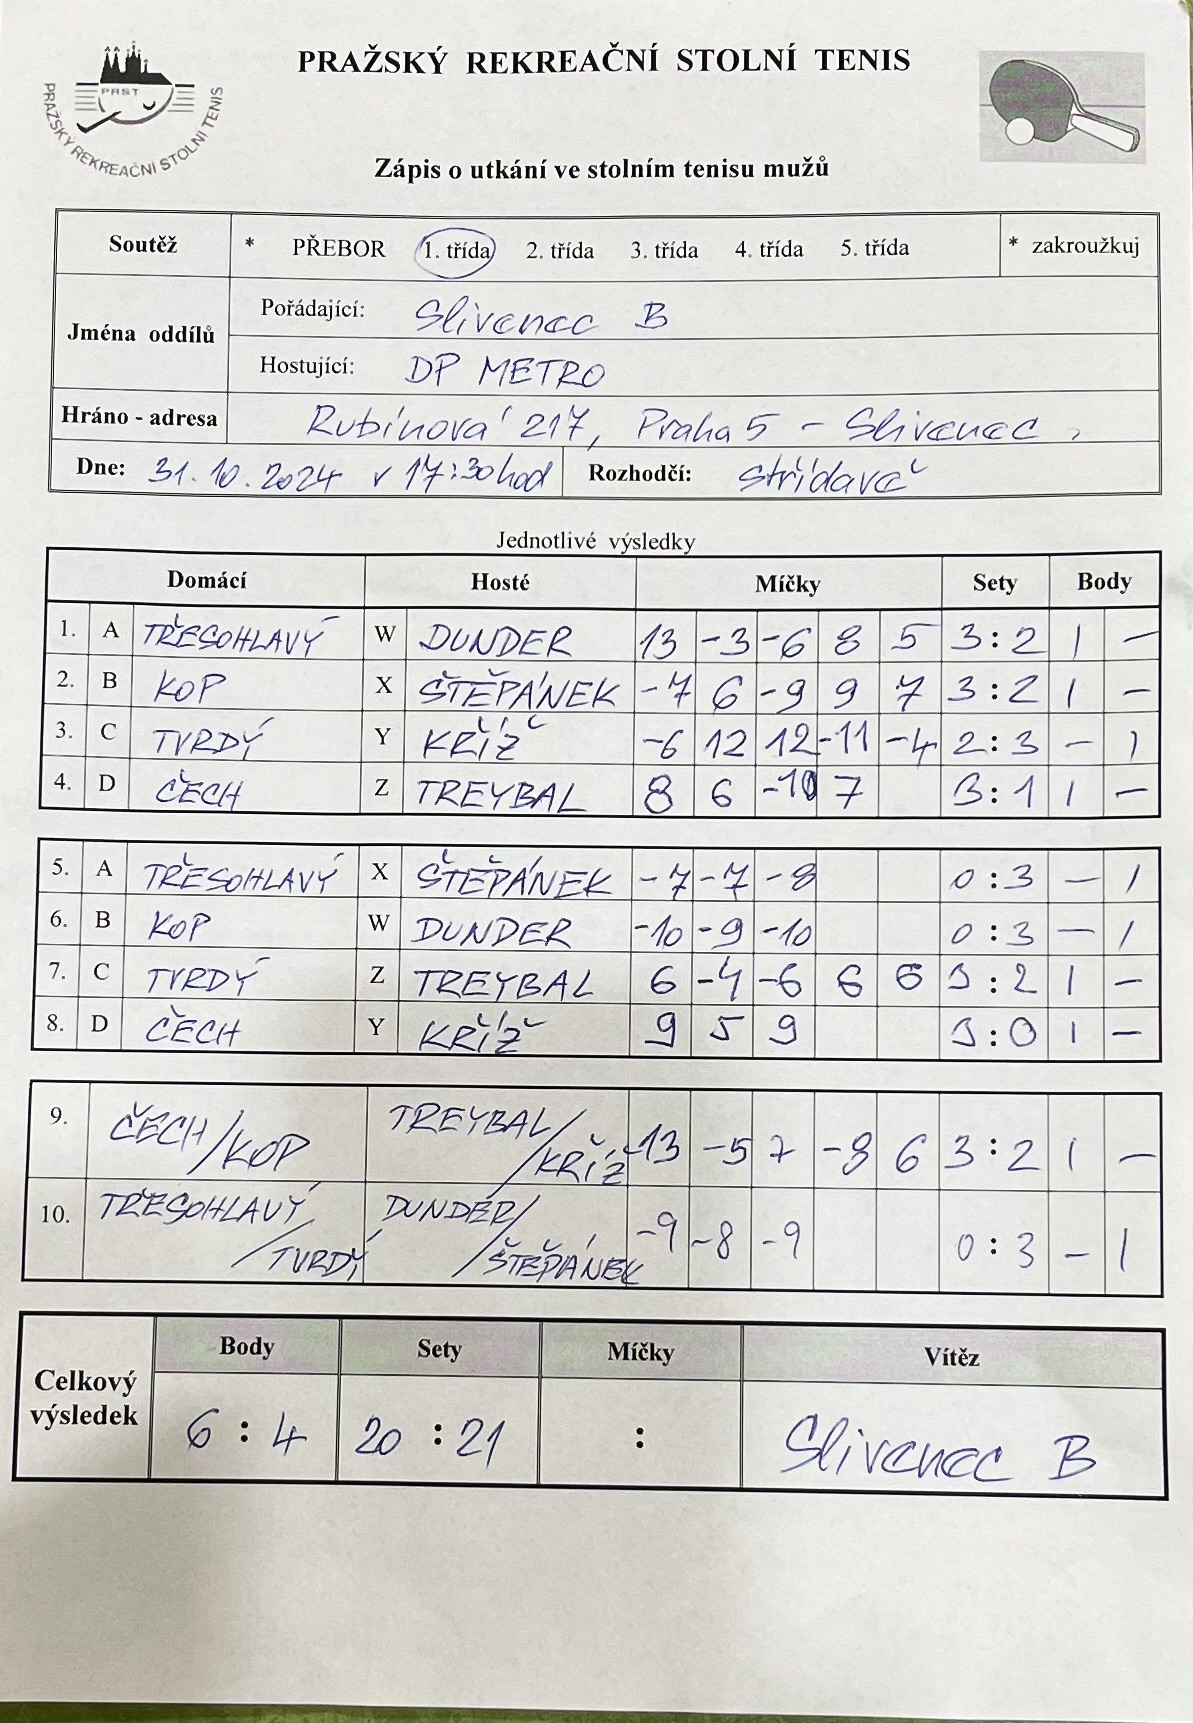 PRAŽSKÝ REKREAČNÍ STOLNÍ TENIS
PRST
PRAŽSKÝ REKREAČNÍ STOLNÍ TENIS
Zápis o utkání ve stolním tenisu mužů
Soutěž * PŘEBOR 1. třída 2. třída 3. třída 4. třída 5. třída * zakroužkuj
Jména oddílů
Pořádající: Slivenec B
Hostující: DP METRO
Hráno - adresa Rubínová 217, Praha 5 - Slivenec,
Dne: 31.10.2024 v 17:30 hod Rozhodčí: střídavě
Jednotlivé výsledky
Domácí Hosté Míčky Sety Body
1. A TŘESOHLAVÝ W DUNDER 13 -3 -6 8 5 3:2 1 -
2. B KOP X ŠTĚPÁNEK -7 6 -9 9 7 3:2 1 -
3. C TVRDÝ Y KŘÍŽ -6 12 12 -11 -4 2:3 - 1
4. D ČECH Z TREYBAL 8 6 -10 7 3:1 1 -
5. A TŘESOHLAVÝ X ŠTĚPÁNEK -7 -7 -8 0:3 - 1
6. B KOP W DUNDER -10 -9 -10 0:3 - 1
7. C TVRDÝ Z TREYBAL 6 -4 -6 6 6 3:2 1 -
8. D ČECH Y KŘÍŽ 9 5 9 3:0 1 -
9. ČECH/KOP TREYBAL/KŘÍŽ -13 -5 7 -8 6 3:2 1 -
10. TŘESOHLAVÝ/TVRDÝ DUNDER/ŠTĚPÁNEK -9 -8 -9 0:3 - 1
Celkový výsledek
Body Sety Míčky Vítěz
6:4 20:21 : Slivenec B